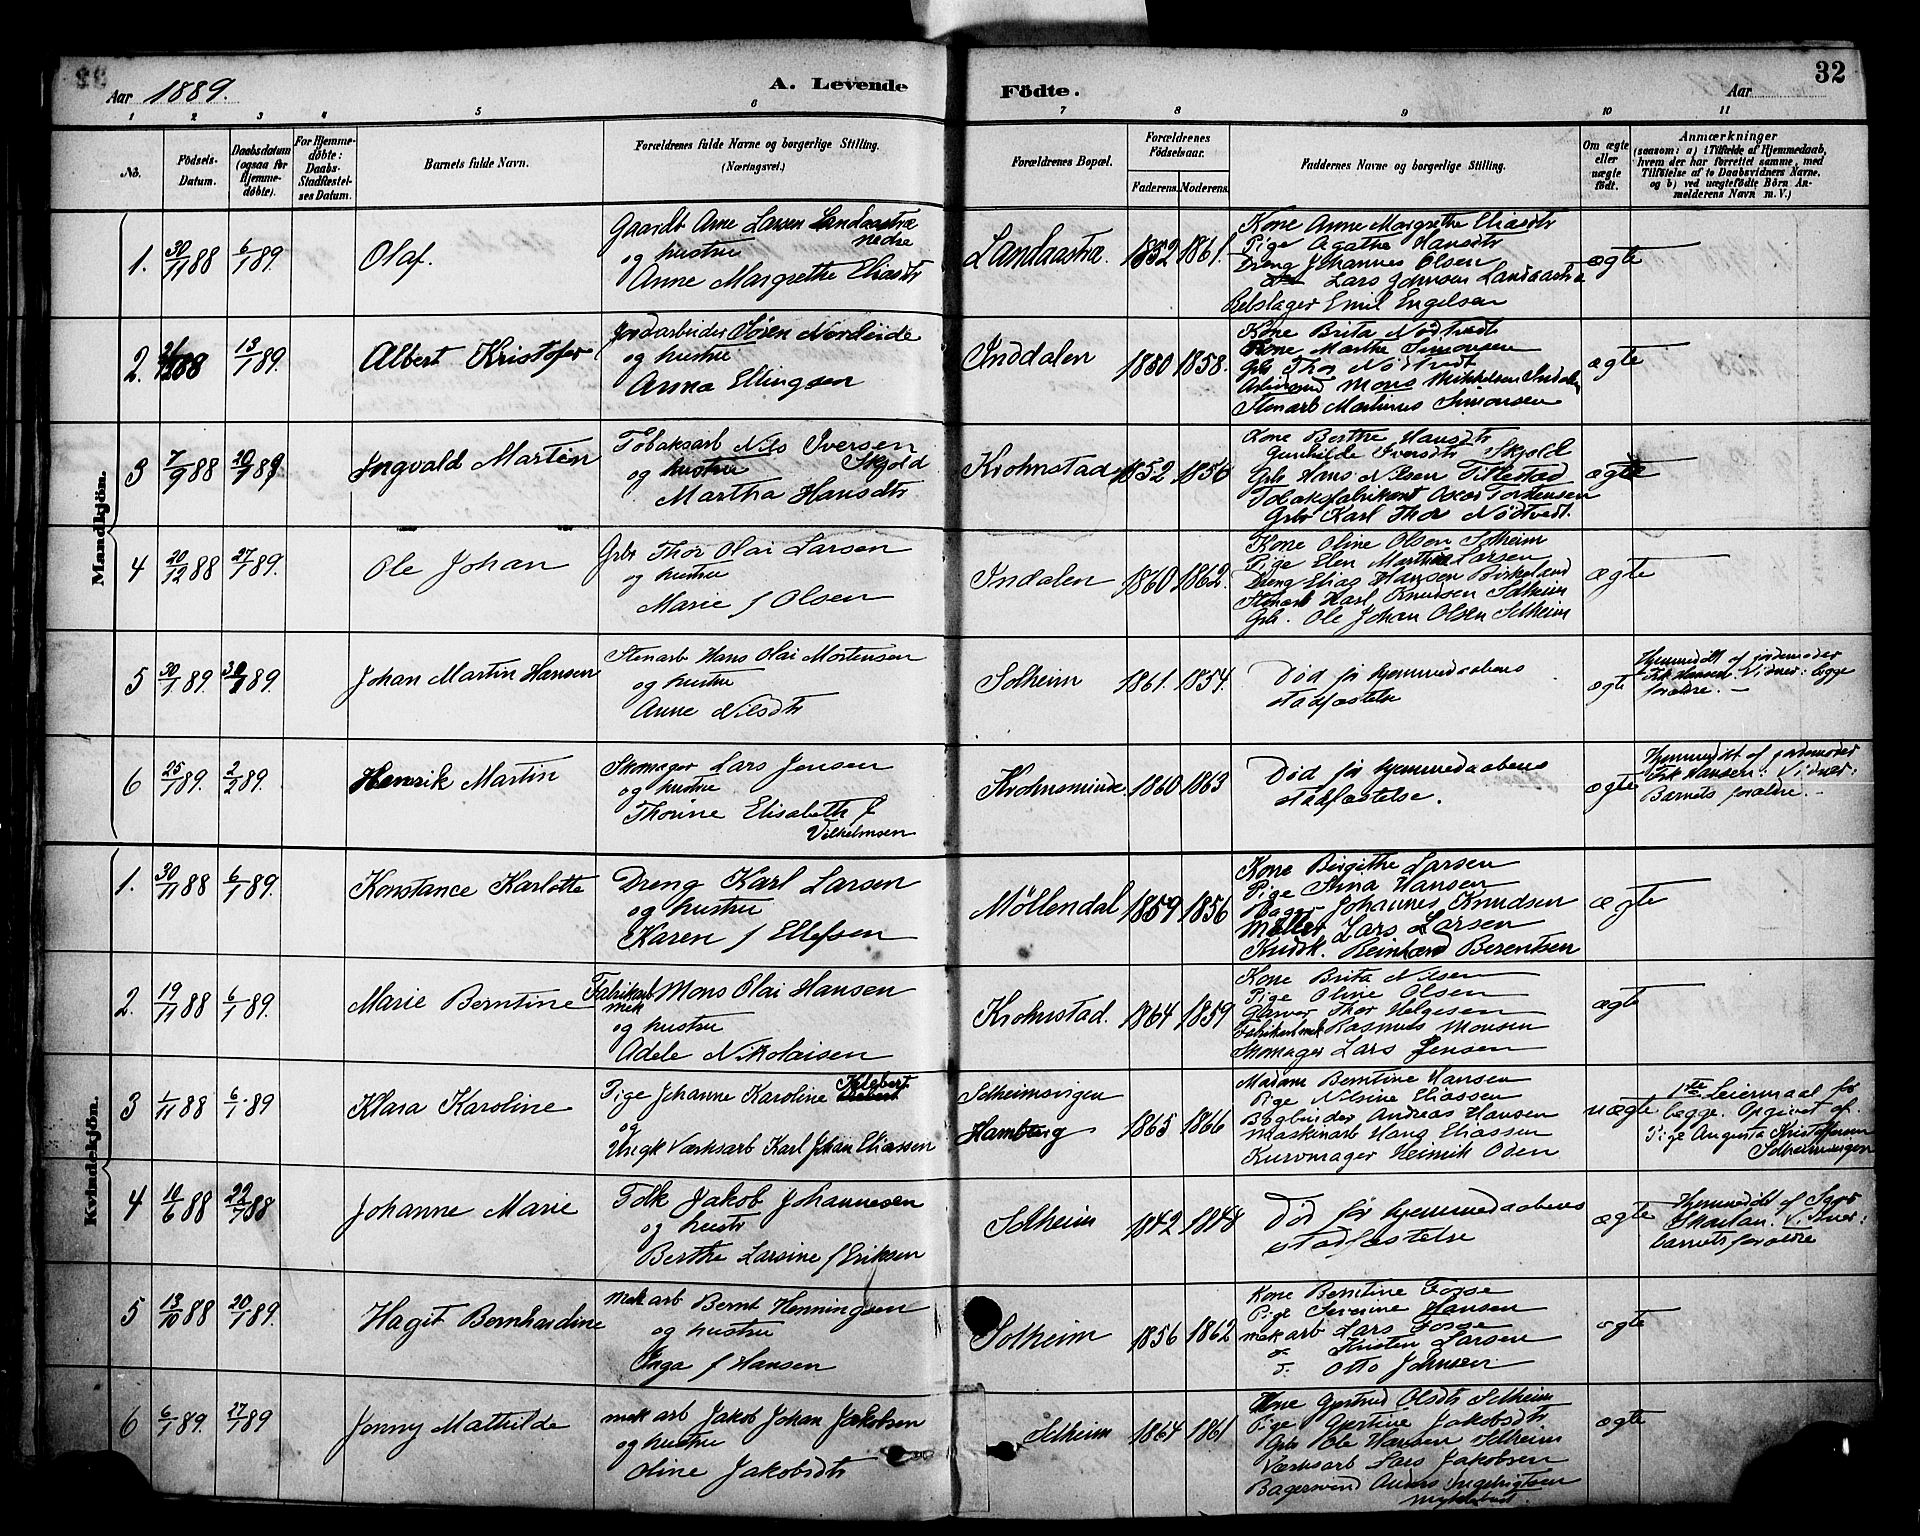 Aar 1889.
A. Levende Födte.
Aar
32
1 2 3 4 5 6 7 8 9 10 11
No.
Födsels-
Datum.
Daabsdatum
(ogsaa for
Hjemme-
døbte).
For Hjemme-
døbte:
Daabs-
Stadfæstel-
ses Datum.
Barnets fulde Navn.
Forældrenes fulde Navne og borgerlige Stilling.
(Næringsvei.)
Forældrenes Bopæl.
Forældrenes
Födselsaar.
Faderens. Moderens.
Faddernes Navne og borgerlige Stilling.
Om ægte
eller
uægte
født.
Anmærkninger
(saasom: a) i Tilfælde af Hjemmedaab,
hvem der har forrettet samme, med
Tilföielse af to Daabsvidners Navne,
og b) ved uægtefödte Börn An-
melderens Navn m. V.)
Mandkjön.
1. 30/11 88 6/1 89. Olaf.
Gaardbr Arne Larsen Landaastræ
nedre
og hustru
Anne Margrethe Eliasdtr
Landaastræ. 1852 1861.
Kone Anne Margrethe Eliasdtr
Pige Agathe Hansdtr
Dreng Johannes Olsen
Lars Johnsen Landaastræ
Beltslager Emil Engelsen
ægte
2. 88 13/1 89. Albert Kristofer
Jordarbeider Søren Nordeide
og hustru
Anna Ellingsen
Inddalen 1850 1858.
Kone Brita Nødtvedt
Kone Marthe Simonsen
Grb Thor Nødtvedt
Mons Mikkelsen Indalen
Stenarb Martinus Simonsen
ægte
3 7/9 88 20/1 89 Ingvald Martin
Tobaksarb Nils Iversen
Skjold
og hustru
Martha Hansdtr
Krohnstad 1852 1856
Kone Berthe Hansdtr
Gunhilde Iversdtr Skjold
Grb Hans Nilsen Tillestad
Tobaksfabrikant Oscar Torstensen
Grbr Karl Thor Nödtvedt.
ægte
4 20/12 88 27/1 89. Ole Johan
Grbr Thor Olai Larsen
og hustru
Marie f Olsen
Indalen 1860 1862.
Kone Oline Olsen Solheim
Pige Elen Marthe Larsen
Dreng Elias Hansen Birkeland
Stenarb Karl Knudsen Solheim
Grb. Ole Johan Olsen Solheim
ægte
5 30/1 89. 30/1 89. Johan Martin Hansen
Stenarb Hans Olai Mortensen
og hustru
Anne Nilsdtr
Solheim 1861. 1854.
Død før hjemmedaabens
stadfæstelse
ægte
Hjemmedøbt af jordemoder
Frk Hansen. Vidner: begge
forældre. —
6 25/1 89. 2/2 89. Henrik Martin
Skomager Lars Jensen
og hustru
Thorine Elisabeth f
Vilhelmsen
Krohnsminde. 1860 1863
Død før hjemmedaabens
stadfæstelse.
ægte
Hjemmedöbt af jordemoder
Frk Hansen. Vidner:
Barnets forældre. —
Kvindekjön.
1. 30/11 88 6/1 89. Konstance Karlotte
Dreng Karl Larsen
og hustru
Karen f Ellefsen
Møllendal 1859 1856
Kone Birgithe Larsen
Pige Anna Hansen
Bager Johannes Knudsen
Møller Lars Larsen
Kudsk. Reinhard Berentsen
ægte
2. 19/11 88 6/1 89. Marie Berntine
Fabrikarb Mons Olai Hansen
mek
og hustru
Adele Nikolaisen
Krohnstad. 1864 1859
Kone Brita Nilsen
Pige Oline Olsen
Garver Thor Helgesen
Fabrikarb mek Rasmus Monsen
Skomager Lars Jensen
ægte
3 1/11 88 6/1 89 Klara Karoline
Pige Johanne Karoline Klebert
og
Ungk Værksarb Karl Johan Eliassen
Solheimsvigen
Hamburg 1865 1866
Madam Berntine Hansen
Pige Nilsine Eliassen
Bogbinder Andreas Hansen
Maskinarb Hans Eliassen
Kurvmager Heinrik Olsen
uægte
1ste Leiermaal for
begge. Opgivet af
Pige Augusta Kristoffersen
Solheimsvigen
4 19/6 88 22/7 88 Johanne Marie
Tolk Jakob Johannesen
og hustr
Berthe Larsine f Eriksen
Solheim 1842 1848
Død før hjemmedaabens
stadfæstelse
ægte
Hjemmedöbt af
Vidner:
barnets forældre
5 13/10 88 20/1 89. Hagit Bernhardine
mek arb Bernt Henningsen
og hustru
Inga f Hansen
Solheim 1856 1862
Kone Berntine Fosse
Pige Severine Hansen
mek arb Lars Fosse
do Kristen Larsen
do Otto Johnsen
ægte
6 6/1 89. 27/1 89 Jonny Mathilde
mek arb Jakob Johan Jakobsen
og hustru
Oline Jakobsdtr
Solheim 1864 1861
Kone Gjertrud Olsdtr Solheim
Pige Gjertine Jakobsdtr
Grb Ole Hansen Solheim
Værksarb Lars Jakobsen
Bagersvend Anders Ingebrigtsen
ægte